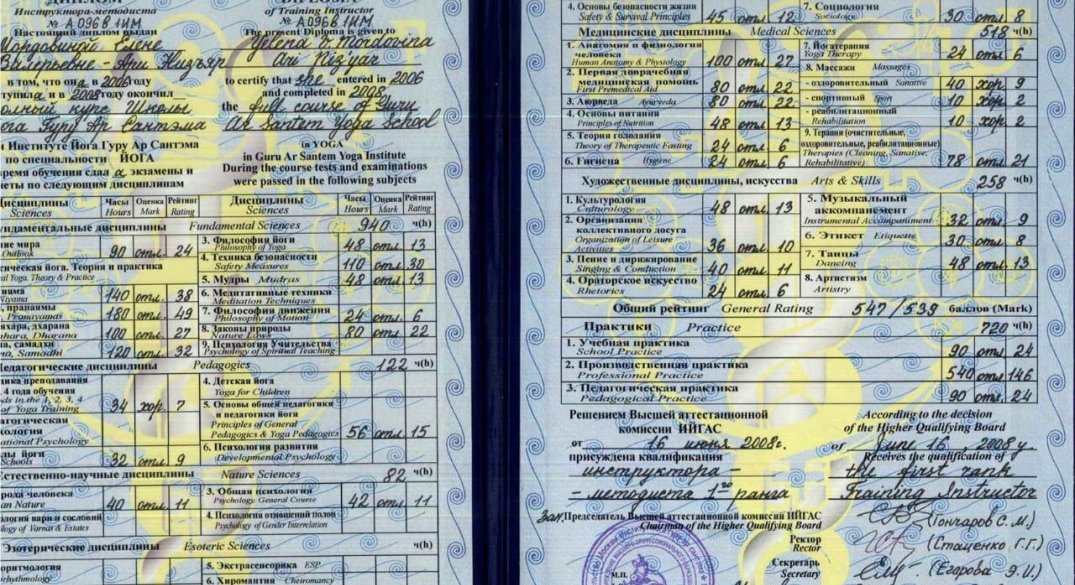 ДИПЛОМ
Инструктора-методиста
№ А096В 1ИМ
Настоящий диплом выдан
Мордовиной Елене
Валерьевне - Ари Низъяр
в том, что она в 2006 году
и в 2008 году окончил
полный курс Школы
Йога Гуру Ар Сантэма
Институте Йога Гуру Ар Сантэма
по специальности ЙОГА
время обучения сдал а экзамены и
зачеты по следующим дисциплинам
of Training Instructor
№ А096В 1ИМ
The present Diploma is given to
Yelena V. Mordovina
Ari Nizyar
to certify that she entered in 2006
and completed in 2008
the full course of Guru
Ar Santem Yoga School
in YOGA
in Guru Ar Santem Yoga Institute
During the course tests and examinations
were passed in the following subjects
Дисциплины Sciences Часы Hours Оценка Mark Рейтинг Rating
Дисциплины Sciences Часы Hours Оценка Mark Рейтинг Rating
Фундаментальные дисциплины Fundamental Sciences 940 ч(h)
мира Outlook 90 отл. 24
Йога. Теория и практика
Yoga. Theory & Practice
140 отл. 38
пранаямы Pranayamas 180 отл. 49
дхарана Dharana 100 отл. 27
самадхи Samadhi 120 отл. 32
3. Философия йоги Philosophy of Yoga 48 отл 13
4. Техника безопасности Safety Measures 110 отл. 30
5. Мудры Mudras 48 отл 13
6. Медитативные техники Meditation Techniques
7. Философия движения Philosophy of Motion 24 отл. 6
8. Законы природы Nature Laws 80 отл 22
9. Психология Учительства Psychology of Spiritual Teaching
Педагогические дисциплины Pedagogics 122 ч(h)
преподавания
4 года обучения
in the 1, 2, 3, 4
of Yoga Training 34 хор. 7
Psychology
Schools 32 отл. 9
4. Детская йога
Yoga for Children
5. Основы общей педагогики
и педагогики йоги
Principles of General
Pedagogics & Yoga Pedagogics 56 отл 15
6. Психология развития
Developmental Psychology
Естественно-научные дисциплины Nature Sciences 82 ч(h)
природа человека
Nature 40 отл 11
варн и сословий
of Varnas & Estates
3. Общая психология
Psychology General Course 42 отл 11
4. Психология отношений полов
Psychology of Gender Interrelation
Эзотерические дисциплины Esoteric Sciences ч(h)
5. Экстрасенсорика ESP
6. Хиромантия Cheiromancy
4. Основы безопасности жизни
Safety & Survival Principles 45 отл 12
7. Социология
Sociology 30 отл 8
Медицинские дисциплины Medical Sciences 518 ч(h)
1. Анатомия и физиология
человека
Human Anatomy & Physiology 100 отл 27
2. Первая доврачебная
медицинская помощь
First Premedical Aid 80 отл 22
3. Аюрведа Ayurveda 80 отл 22
4. Основы питания
Principles of Nutrition 48 отл 13
5. Теория голодания
Theory of Therapeutic Fasting 24 отл 6
6. Гигиена Hygiene 24 отл 6
7. Йогатерапия
Yoga Therapy 24 отл 6
8. Массажи Massages
- оздоровительный Sanative 40 хор 9
- спортивный Sport 10 хор 2
- реабилитационный
Rehabilitation 10 хор 2
9. Терапия (очистительные,
оздоровительные, реабилитационные)
Therapies (Cleaning, Sanative,
Rehabilitative) 78 отл 21
Художественные дисциплины, искусства Arts & Skills 258 ч(h)
1. Культурология
Culturology 48 отл. 13
2. Организация
коллективного досуга
Organization of Leisure
Activities 36 отл 10
3. Пение и дирижирование
Singing & Conduction 40 отл 11
4. Ораторское искусство
Rhetorics 24 отл 6
5. Музыкальный
аккомпанемент
Instrumental Accompaniment 32 отл. 9
6. Этикет Etiquette 30 отл 8
7. Танцы
Dancing 48 отл 13
8. Артистизм
Artistry
Общий рейтинг General Rating 547/539 баллов (Mark)
Практики Practice 720 ч(h)
1. Учебная практика
School Practice 90 отл 24
2. Производственная практика
Professional Practice 540 отл 146
3. Педагогическая практика
Pedagogical Practice 90 отл. 24
Решением Высшей аттестационной
комиссии ИЙГАС
от 16 июня 2008г.
присуждена квалификация
инструктора -
- методиста 1го ранга
According to the decision
of the Higher Qualifying Board
of June 16 2008 y
Receives the qualification of
the first rank
Training Instructor
Зам. Председатель Высшей аттестационной комиссии ИЙГАС
Chairman of the Higher Qualifying Board
(Гончаров С.М.)
Ректор
Rector
(Стаценко Г.Г.)
Секретарь
Secretary
(Егарова Э.И.)
М.П.